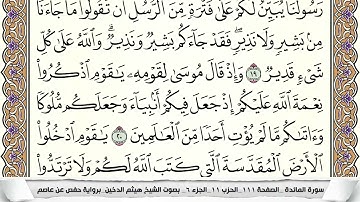 رَسُولُنَا يُبَيِّنُ لَكُمْ عَلَىٰ فَتْرَةٍ مِّنَ ٱلرُّسُلِ أَن تَقُولُوا۟ مَا جَآءَنَا
مِنۢ بَشِيرٍ وَلَا نَذِيرٍ ۖ فَقَدْ جَآءَكُم بَشِيرٌ وَنَذِيرٌ ۗ وَٱللَّهُ عَلَىٰ كُلِّ
شَىْءٍ قَدِيرٌ ١٩ وَإِذْ قَالَ مُوسَىٰ لِقَوْمِهِۦ يَـٰقَوْمِ ٱذْكُرُوا۟
نِعْمَةَ ٱللَّهِ عَلَيْكُمْ إِذْ جَعَلَ فِيكُمْ أَنۢبِيَآءَ وَجَعَلَكُم مُّلُوكًا
وَءَاتَىٰكُم مَّا لَمْ يُؤْتِ أَحَدًا مِّنَ ٱلْعَـٰلَمِينَ ٢٠ يَـٰقَوْمِ ٱدْخُلُوا۟
ٱلْأَرْضَ ٱلْمُقَدَّسَةَ ٱلَّتِى كَتَبَ ٱللَّهُ لَكُمْ وَلَا تَرْتَدُّوا۟
سورة المائدة _ الصفحة ١١١ _ الحزب ١١ _ الجزء ٦ _ بصوت الشيخ هيثم الدخين _ برواية حفص عن عاصم